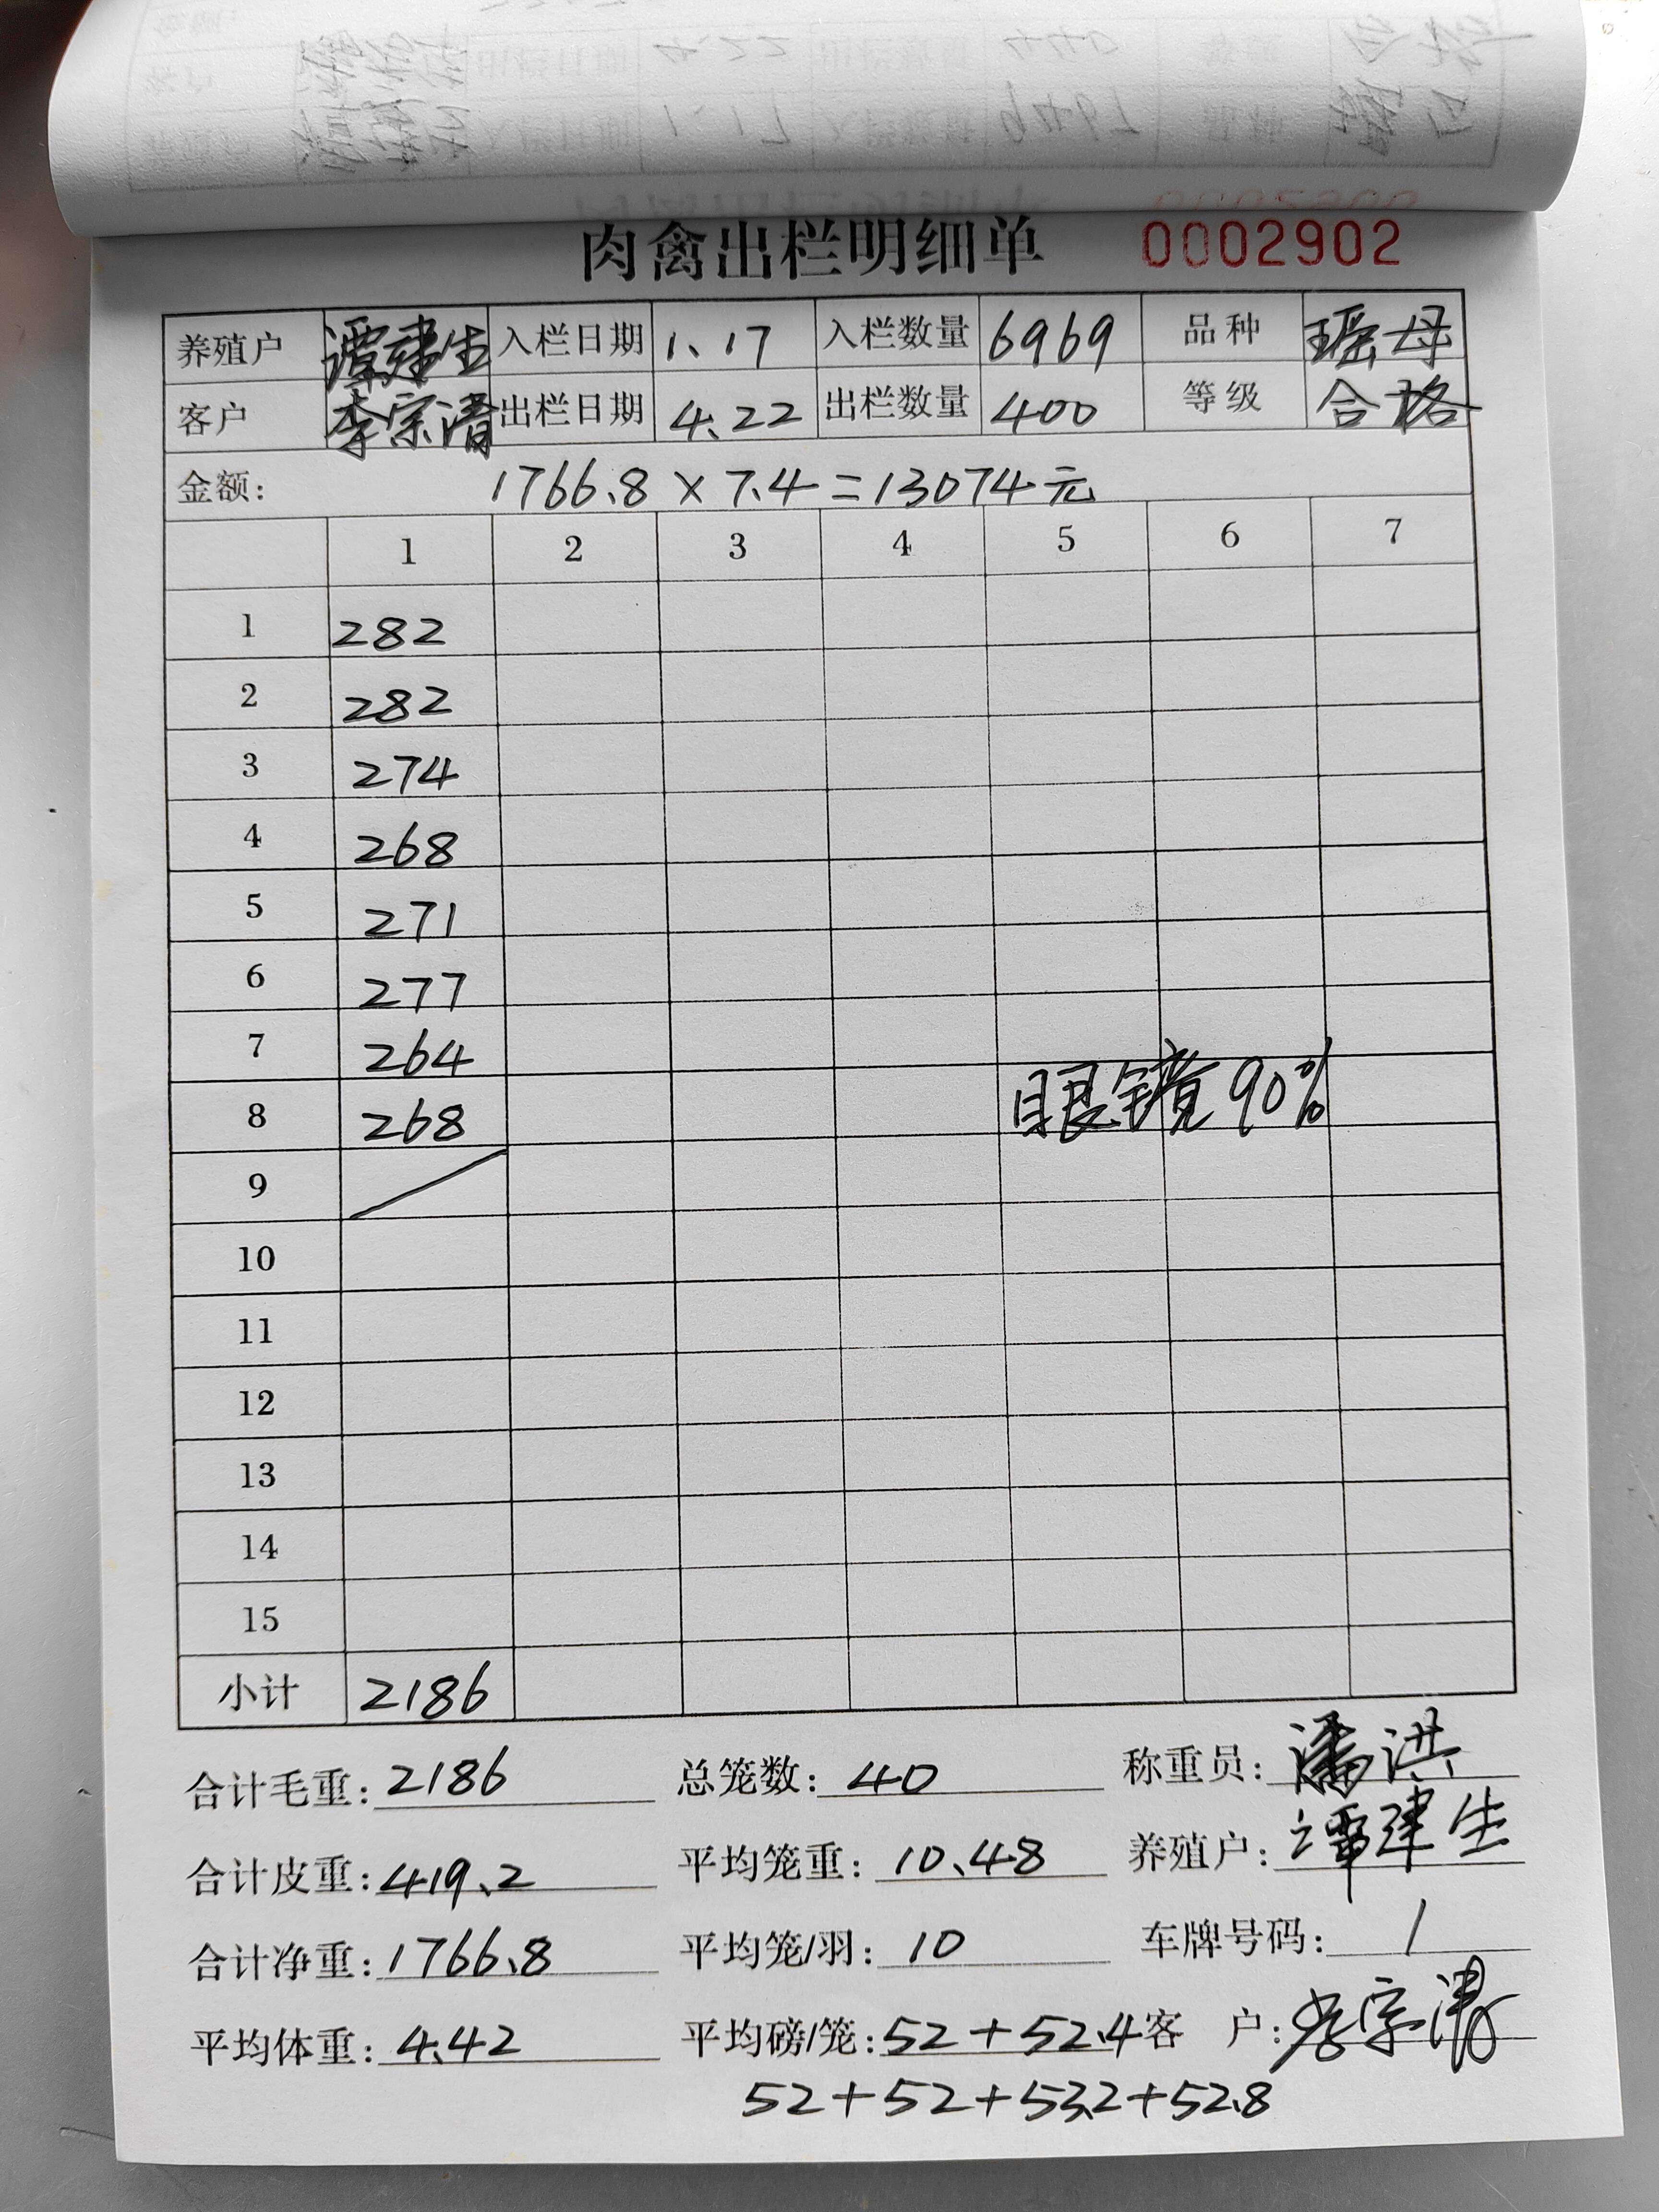 肉禽出栏明细单 0002902
养殖户 谭建生 入栏日期 1、17 入栏数量 6969 品种 瑶母
客户 李宗清 出栏日期 4、22 出栏数量 400 等级 合格
金额: 1766、8 × 7.4 = 13074元
1 2 3 4 5 6 7
1 282
2 282
3 274
4 268
5 271
6 277
7 264
8 268 眼镜90%
9
10
11
12
13
14
15
小计 2186
合计毛重: 2186 总笼数: 40 称重员: 潘洪
合计皮重: 419、2 平均笼重: 10、48 养殖户: 谭建生
合计净重: 1766、8 平均笼/羽: 10 车牌号码: /
平均体重: 4.42 平均磅/笼: 52+52.4 客 户: 李宗清
52+52+53.2+52.8